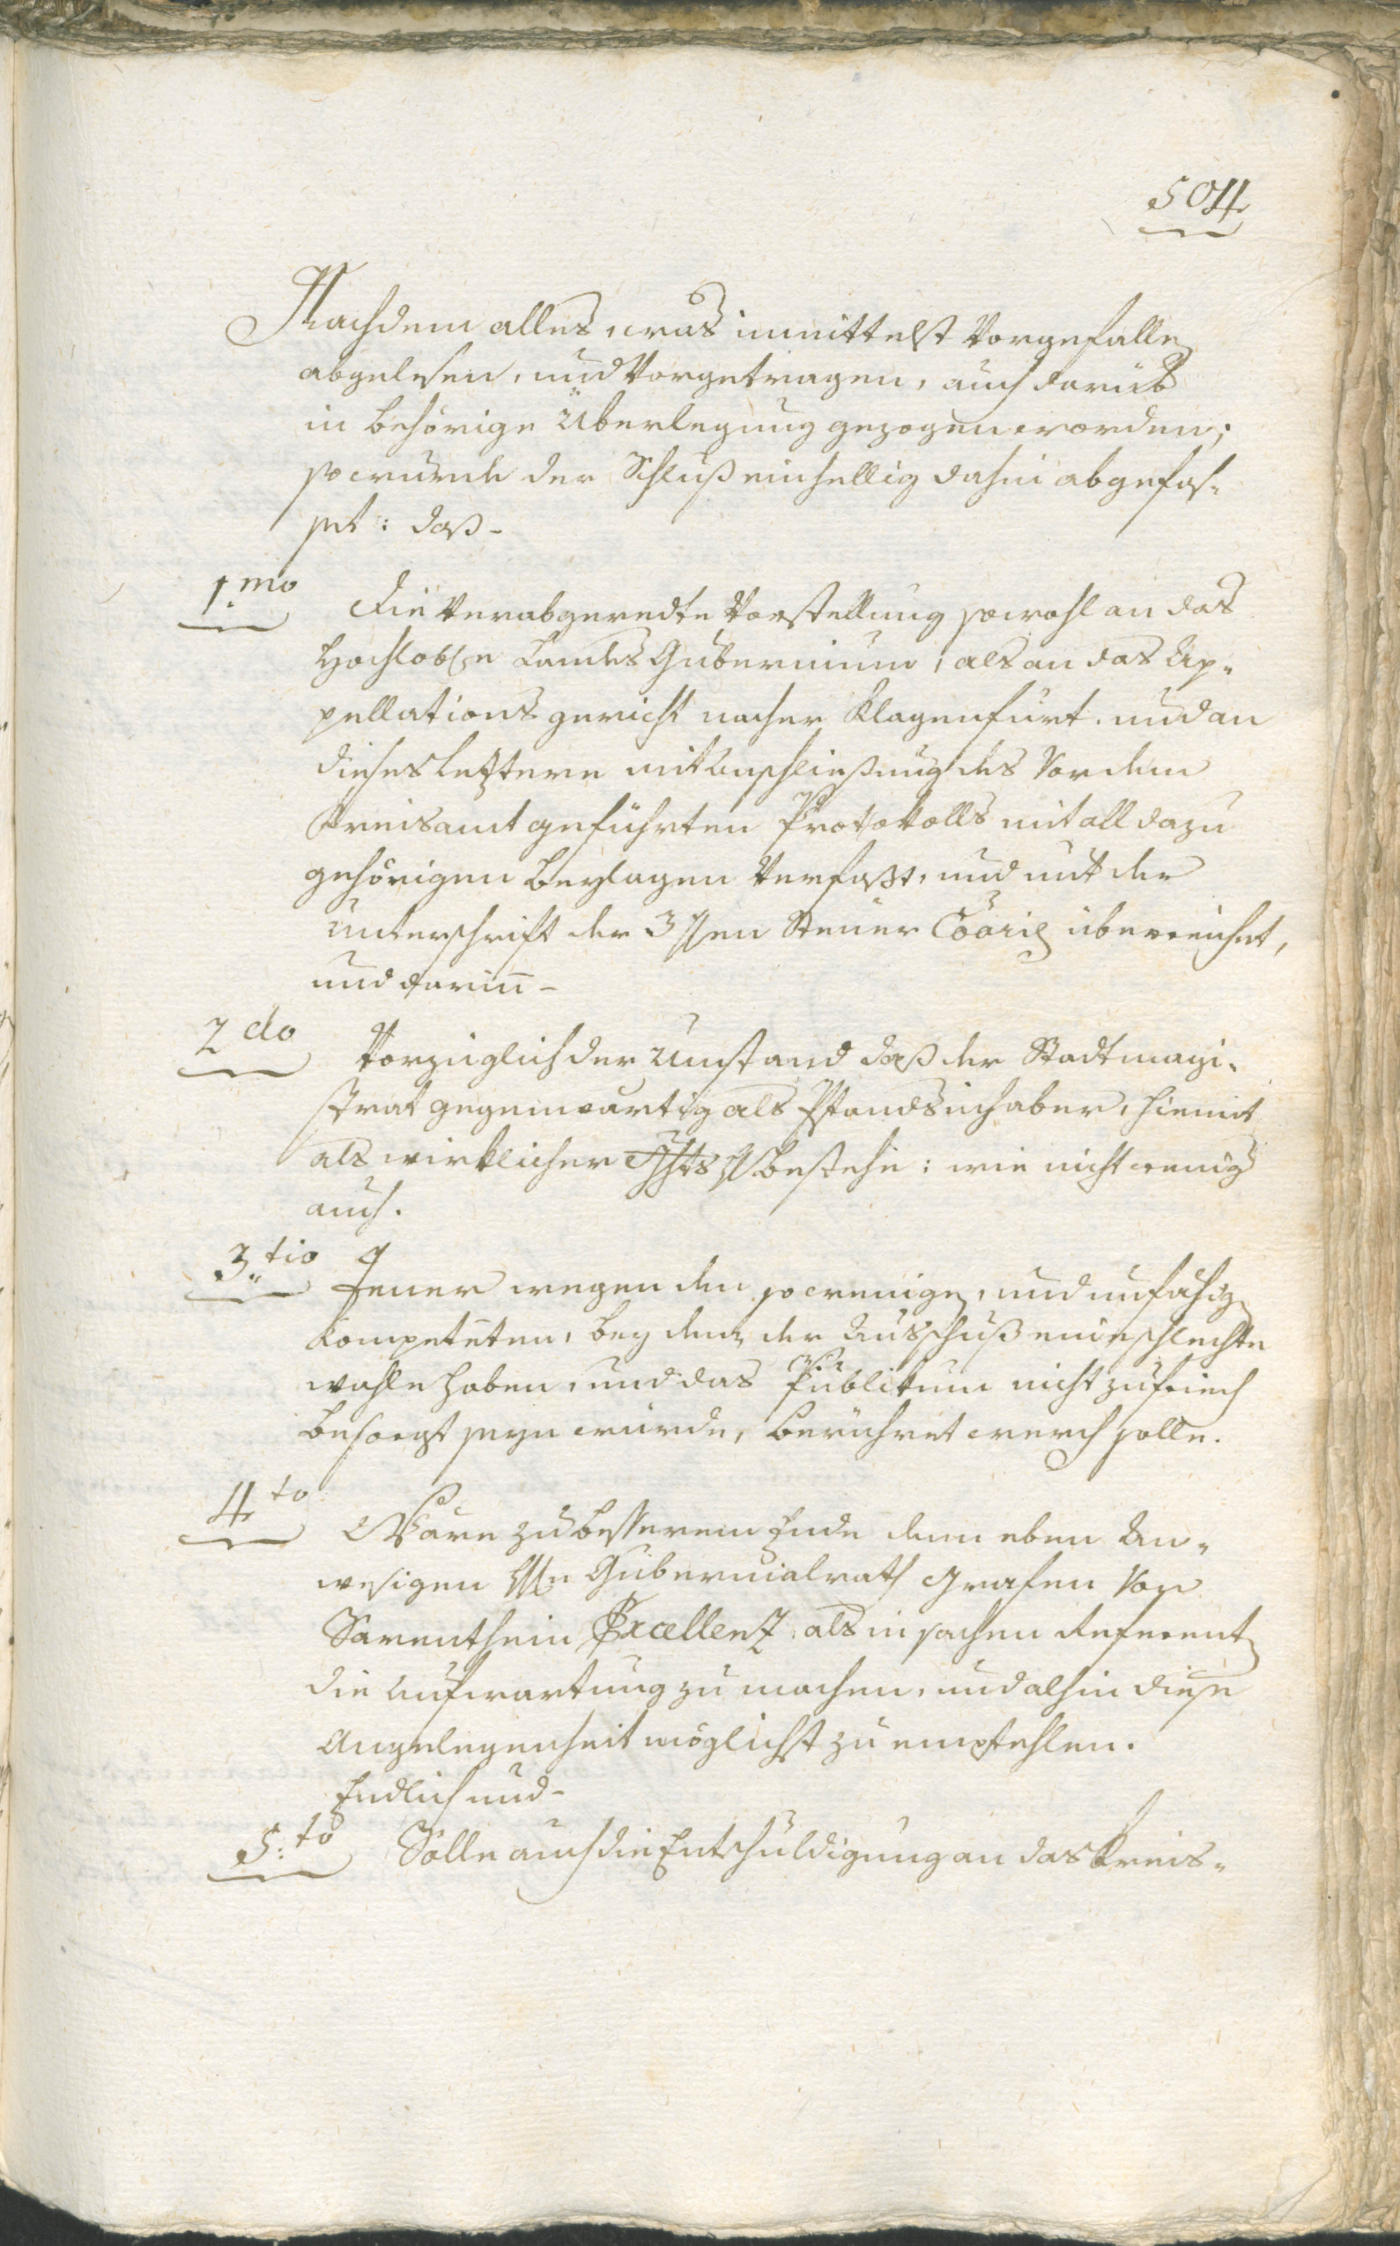 504
Nachdem alles, was inmittelst Vorgefallen
abgelesen, und Vorgetragen, auch darüb
in behörige Überlegung gezogen worden;
so wurde der Schluß einhellig dahin abgefas-
set: daß-
1.mo die Verabgeredte Vorstellung sowohl an das
Hochlob. Landes Gubernium, als an das Ap-
pellations gericht nacher Klagenfurt. und an
dieses letztere mit Anschließung des Vor dem
Kreisamt geführten Protokolls mit all dazu
gehörigen Beylagen Verfaßt, und mit der
Unterschrift der 3 Steuer überreichet,
und darin̄-
2do Vorzüglich der Umstand daß der Stadtmagi-
strat gegenwärtig als Pfandsinhaber, hiemit
als wirklicher bestehe: wie nicht wenig
auch.
3.tio Jener wegen den so wenigen, und unfähigen
kompetenten, bey denen der Ausschuß eine schlechte
wahle haben, und das Publikum nicht zufrieden
besorgt seyn wurde, berühret werden solle.
4to Wäre zu besserem Ende dem eben An-
wesigen Gubernialrath Grafen Von
Sarenthein Excellenz, als in sachen Referenten
die Aufwartung zu machen, und alhin diese
Angelegenheit möglichst zu empfehlen.
Endlich und-
5:to Solle auch die Entschuldigung an das Kreis-